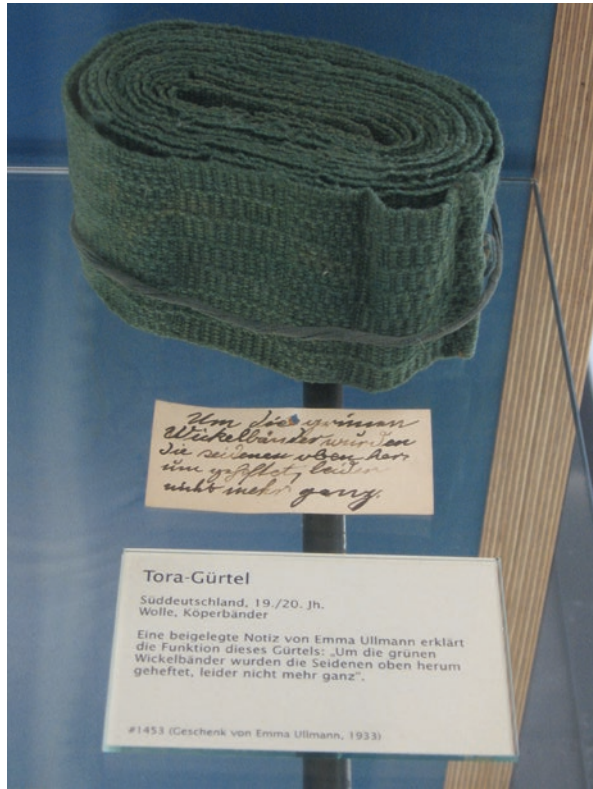 Um die grünen
Wickelbänder wurden
die seidenen oben her-
um geheftet, leider
nicht mehr ganz.
Tora-Gürtel
Süddeutschland, 19./20. Jh.
Wolle, Köperbänder
Eine beigelegte Notiz von Emma Ullmann erklärt
die Funktion dieses Gürtels: „Um die grünen
Wickelbänder wurden die Seidenen oben herum
geheftet, leider nicht mehr ganz“.
#1453 (Geschenk von Emma Ullmann, 1933)